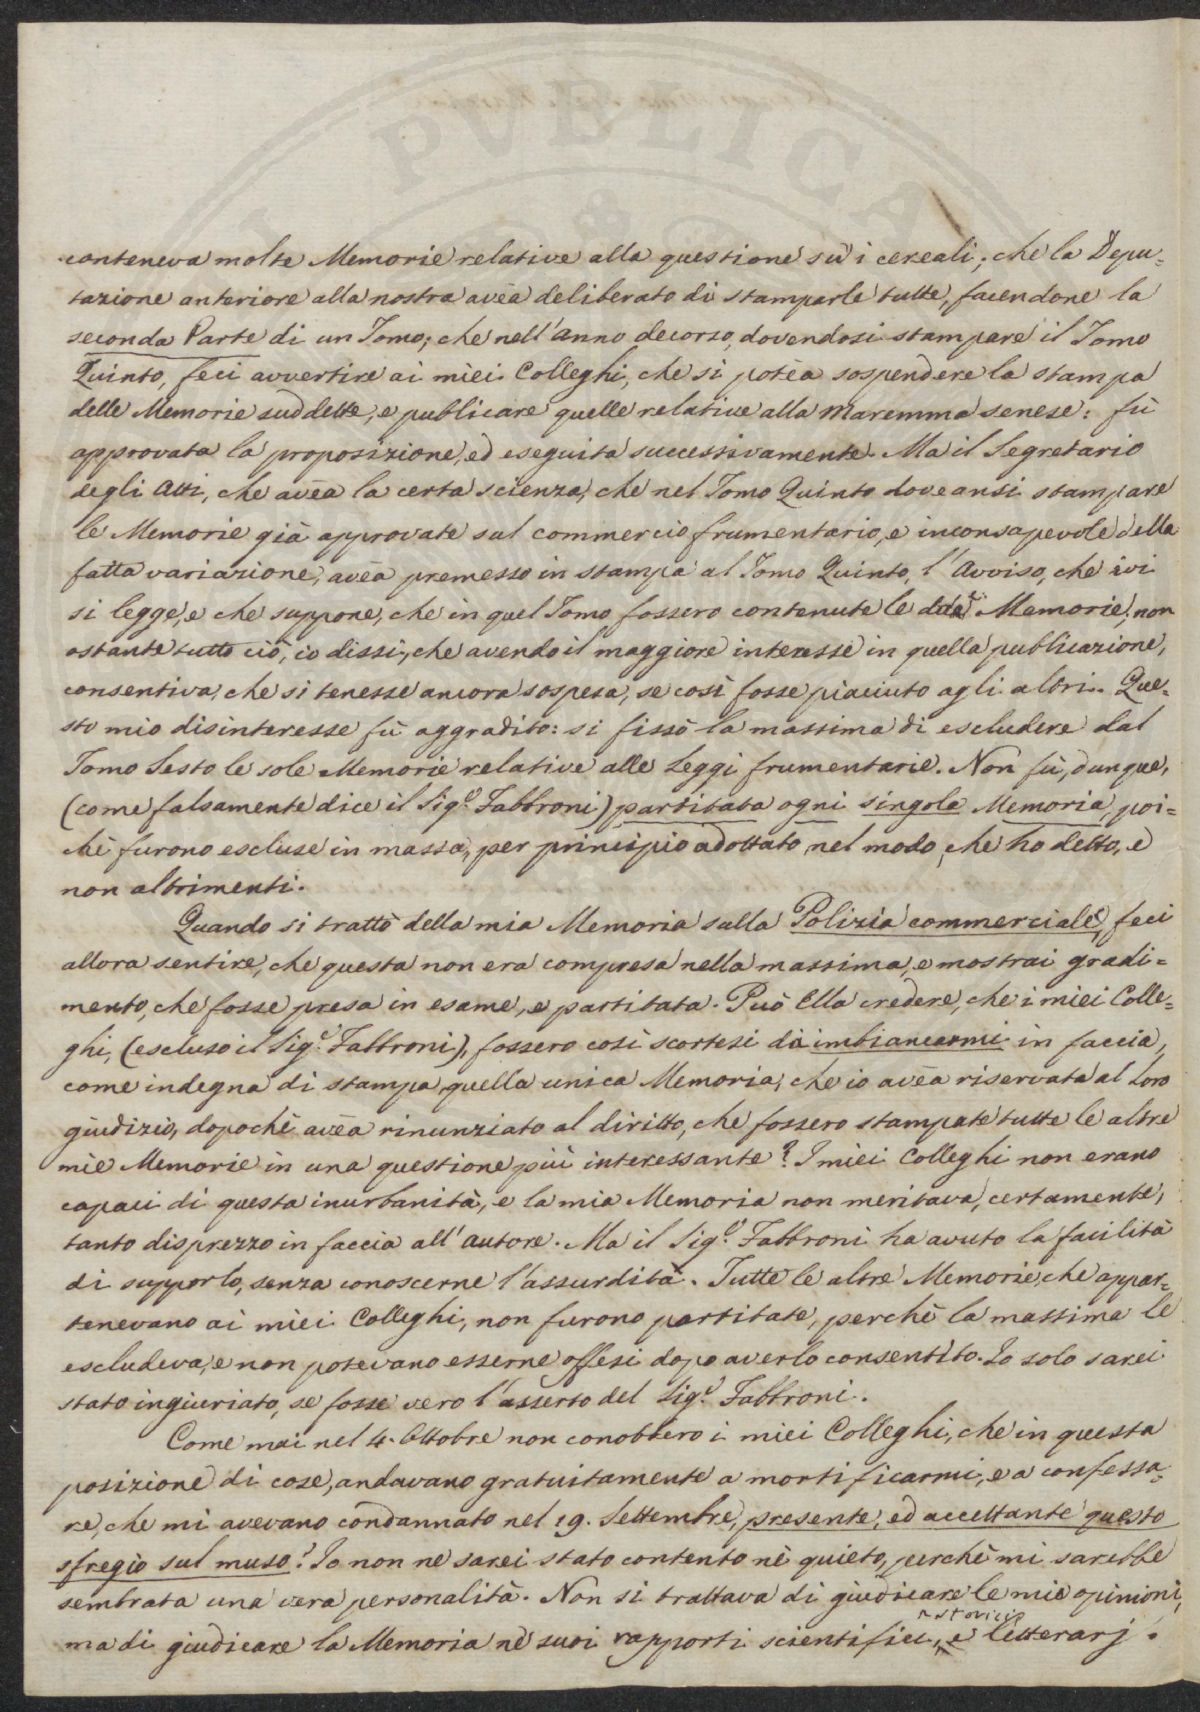 conteneva molte Memorie relative alla questione sù i cereali; che la Depu=
tazione anteriore alla nostra avèa deliberato di stamparle tutte, facendone la
seconda Parte di un Tomo; che nell'anno decorso, dovendosi stampare il Tomo
Quinto, feci avvertire ai mièi Colleghi, che si potèa sospendere la stampa
delle Memorie suddette, e publicare quelle relative alla Maremma senese: fù
approvata la proposizione, ed eseguita successivamente. Ma il Segretario
degli Atti, che avèa la certa scienza, che nel Tomo Quinto doveansi stampare
le Memorie già approvate sul commercio frumentario, e inconsapevole della
fatta variazione, avèa premesso in stampa al Tomo Quinto, l'Avviso, che ivi
si legge, e che suppone, che in quel Tomo fossero contenute le dde Memorie, non
ostante tutto ciò, io dissi, che avendo il maggiore interesse in quella publicazione,
consentiva, che si tenesse ancora sospesa, se così fosse piaciuto agli altri. Que=
sto mio disinteresse fù aggradito: si fissò la massima di escludere dal
Tomo Sesto le sole Memorie relative alle Leggi frumentarie. Non fù, dunque,
(come falsamente dice il Sig.r Fabbroni) partitata ogni singola Memoria, poi=
chè furono escluse in massa, per principio adottato nel modo, che ho detto, e
non altrimenti.
Quando si trattò della mia Memoria sulla Polizia commerciale, feci
allora sentire, che questa non era compresa nella massima, e mostrai gradi=
mento, che fosse presa in esame, e partitata. Può Ella credere, che i miei Colle=
ghi, (escluso il Sig.r Fabbroni), fossero così scortesi di imbiancarmi in faccia,
come indegna di stampa, quella unica Memoria, che io avèa riservata al Loro
giudizio, dopochè avèa rinunziato al diritto, che fossero stampate tutte le altre
mie Memorie in una questione più interessante? I miei Colleghi non erano
capaci di questa inurbanità, e la mia Memoria non meritava, certamente,
tanto disprezzo in faccia all'autore. Ma il Sig.r Fabbroni ha avuto la facilità
di supporlo, senza conoscerne l'assurdità. Tutte le altre Memorie, che appar=
tenevano ai mièi Colleghi, non furono partitate, perchè la massima le
escludeva, e non potevano esserne offesi dopo averlo consentito. Io solo sarei
stato ingiuriato, se fosse vero l'asserto del Sig.r Fabbroni.
Come mai nel 4. Ottobre non conobbero i miei Colleghi, che in questa
posizione di cose, andavano gratuitamente a mortificarmi, e a confessa=
re, che mi avevano condannato nel 19. Settembre, presente, ed accettante questo
sfregio sul muso? Io non ne sarei stato contento nè quieto, perchè mi sarebbe
sembrata una vera personalità. Non si trattava di giudicare le mie opinioni,
ma di giudicare la Memoria ne' suoi rapporti scientifici, storici e letterarj.